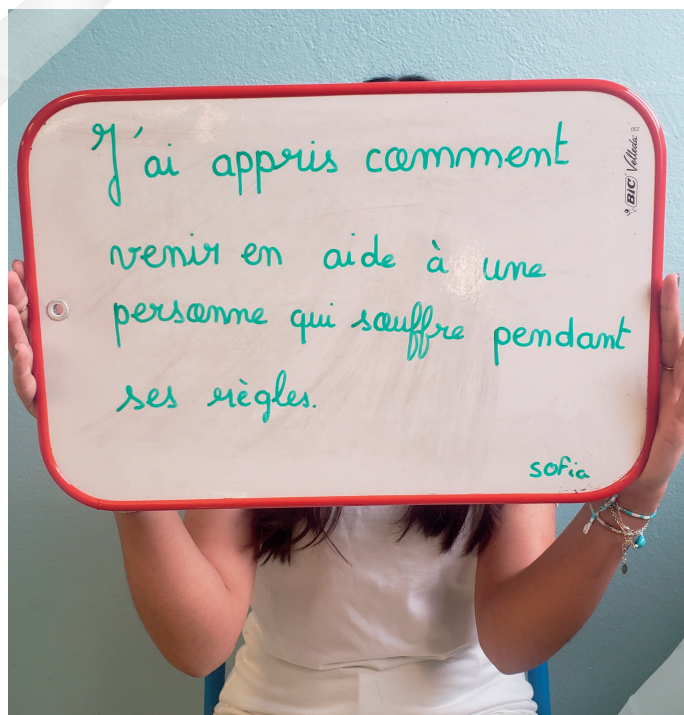 J'ai appris comment
venir en aide à une
personne qui souffre pendant
ses règles.
sofia
BIC Velleda